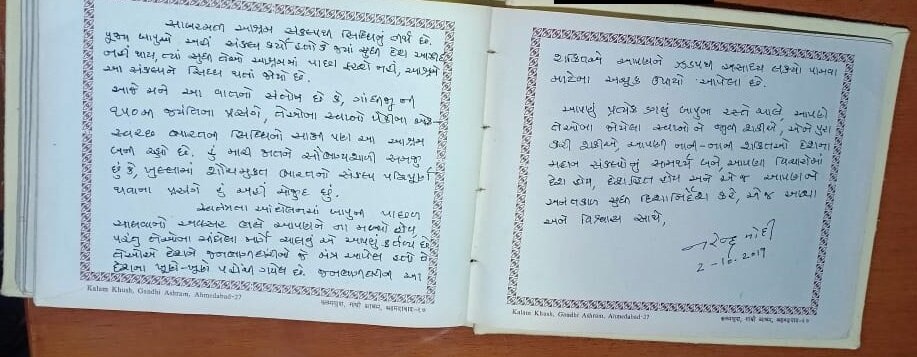 સાબરમતી આશ્રમ સંકલ્પથી સિદ્ધિનું તીર્થ છે.
પૂજ્ય બાપુએ અહીં સંકલ્પ કર્યો હતો કે જ્યાં સુધી દેશ આઝાદ
નહીં થાય, ત્યાં સુધી તેઓ આશ્રમમાં પાછા ફરશે નહીં, આશ્રમે
આ સંકલ્પને સિદ્ધ થતાં જોયો છે.
આજે મને આ વાતનો સંતોષ છે કે, ગાંધીજી ની
૧૫૦મી જયંતિના પ્રસંગે, તેઓના સ્વપ્નો પૈકીના એક-
સ્વચ્છ ભારતની સિદ્ધિનો સાક્ષી પણ આ આશ્રમ
બની રહ્યો છે. હું મારી જાતને સૌભાગ્યશાળી સમજુ
છું કે, ખુલ્લામાં શૌચમુક્ત ભારતનો સંકલ્પ પરિપૂર્ણ
થવાના પ્રસંગે હું અહીં મોજૂદ છું.
સ્વતંત્રતા આંદોલનમાં બાપુની પાછળ
ચાલવાનો અવસર ભલે આપણને ના મળ્યો હોય,
પરંતુ તેઓના ચીંધેલા માર્ગે ચાલવું એ આપણું કર્તવ્ય છે.
તેઓએ દેશને જનભાગીદારીનો જે મંત્ર આપેલ હતો તે
દેશના ખૂણે-ખૂણે પહોંચી ગયેલ છે. જનભાગીદારીની આ
Kalam Khush, Gandhi Ashram, Ahmedabad-27
कलमखुश, गांधी आश्रम, अहमदाबाद-२७
શક્તિએ આપણને ઝડપથી અસાધ્ય લક્ષ્યો પામવા
માટેના અચૂક ઉપાયો આપેલા છે.
આપણું પ્રત્યેક ડગલું બાપુના રસ્તે ચાલે, આપણે
તેઓના જોયેલા સ્વપ્નો ને જીવી શકીએ, એને પુરા
કરી શકીએ, આપણી નાની-નાની શક્તિઓ દેશના
મહાન સંકલ્પોનું સામર્થ્ય બને, આપણા વિચારોમાં
દેશ હોય, દેશહિત હોય અને એ જ આપણને
અનંતકાળ સુધી દિશાનિર્દેશ કરે, એ જ આસ્થા
અને વિશ્વાસ સાથે,
નરેન્દ્ર મોદી
2-10-2019
Kalam Khush, Gandhi Ashram, Ahmedabad-27
कलमखुश, गांधी आश्रम, अहमदाबाद-२७